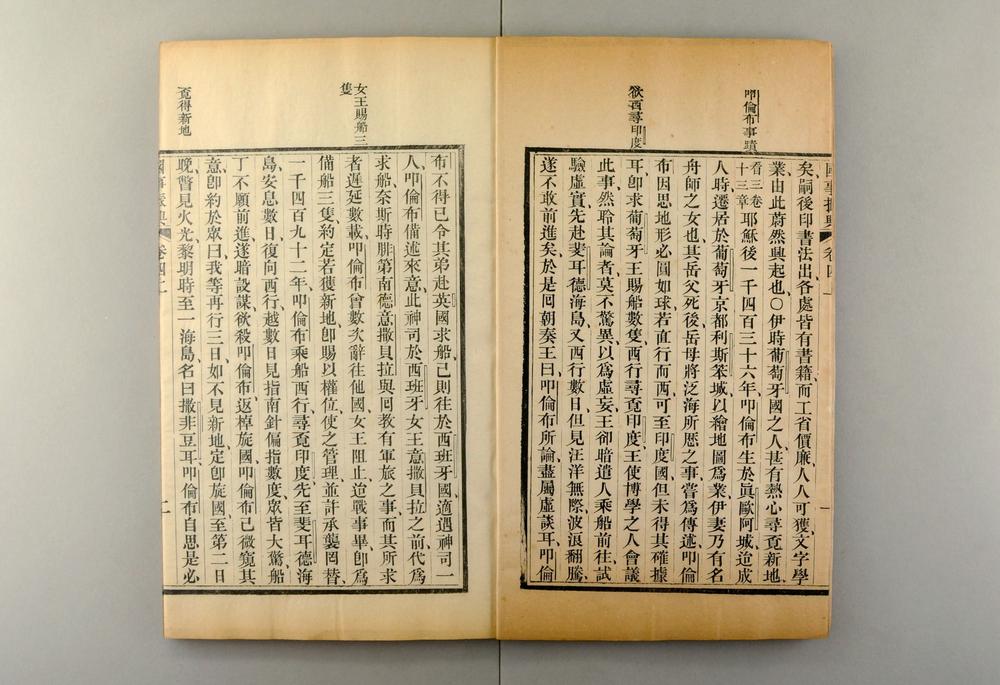 叩倫布事蹟
欲西尋印度
矣、嗣後印書法出、各處皆有書籍、而工省價廉、人人可獲、文字學
業、由此蔚然興起也、○伊時葡萄牙國之人、甚有熱心尋覔新地、
看三卷
十三章
耶穌後一千四百三十六年、叩倫布生於眞歐阿城、迨成
人時、遷居於葡萄牙京都利斯笨城、以繪地圖爲業、伊妻乃有名
舟師之女也、其岳父死後、岳母將泛海所歷之事、嘗爲傳述、叩倫
布因思地形必圓如球、若直行而西、可至印度國、但未得其確據
耳、卽求葡萄牙王賜船數隻、西行尋覔印度、王使博學之人會議
此事、然聆其論者、莫不驚異、以爲虛妄、王卻暗遣人乘船前往、試
驗虛實、先赴斐耳德海島、又西行數日、但見汪洋無際、波浪翻騰、
遂不敢前進矣、於是囘朝奏王曰、叩倫布所論、盡屬虛談耳、叩倫
國事振興 卷四 一
女王賜船三
隻
覔得新地
布不得已、令其弟赴英國求船、己則往於西班牙國、適遇神司一
人、叩倫布備述來意、此神司於西班牙女王意撒貝拉之前、代爲
求船、奈斯時腓第南德意撒貝拉、與囘敎有軍旅之事、而其所求
者遲延數載、叩倫布曾數次辭往他國、女王阻止、迨戰事畢、卽爲
備船三隻、約定若獲新地、卽賜以權位、使之管理、並許承襲罔替、
一千四百九十二年、叩倫布乘船西行、尋覔印度、先至斐耳德海
島、安息數日、復向西行、越數日、見指南針偏指數度、眾皆大驚、船
丁不願前進、遂暗設謀、欲殺叩倫布、返棹旋國、叩倫布已微窺其
意、卽約於眾曰、我等再行三日、如不見新地、定卽旋國、至第二日
晚、瞥見火光、黎明時至一海島、名曰撒非豆耳、叩倫布自思是必
國事振興 卷四 二